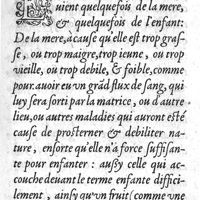 uient quelquefois de la mere,
& quelquefois de l'enfant:
De la mere, à cause qu'elle est trop grasse
, ou trop maigre, trop ieune, ou trop
vieille, ou trop debile, & foible, comme
pour auoir eu vn grãd flux de sang, qui
luy sera sorti par la matrice, ou d'autre
lieu, ou autres maladies qui auront esté
cause de prosterner & debiliter nature
, ensorte qu'elle n'a force suffisante
pour enfanter : aussy celle qui accouche
deuant le terme enfante difficilement
, ainsy qu'vn fruit (comme vne